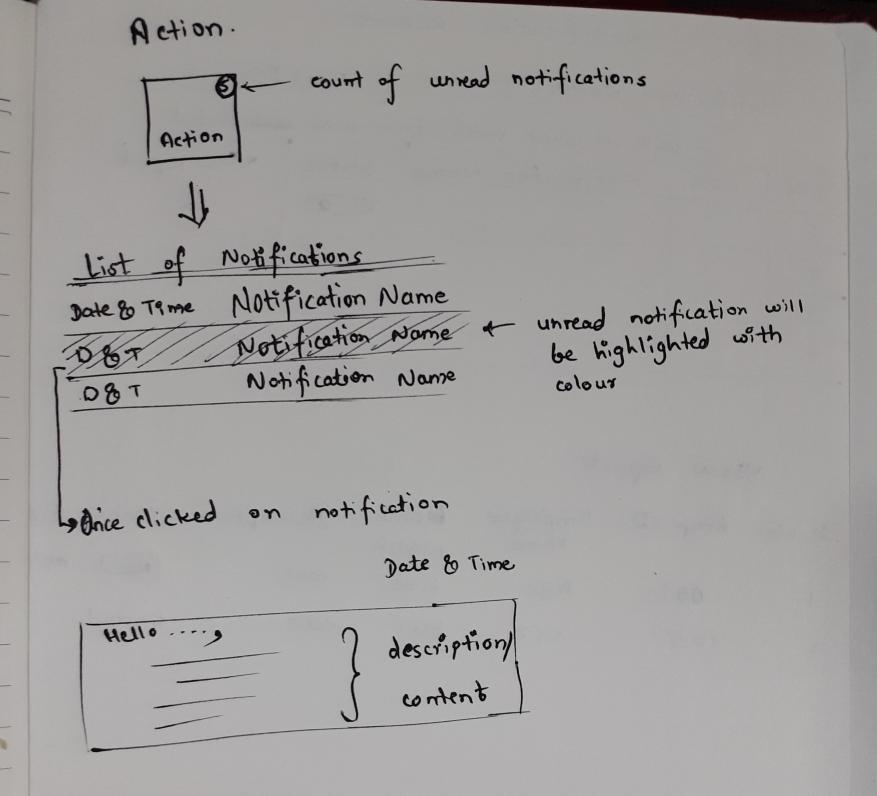 Action.
5
count of unread notifications
Action
List of Notifications
Date & Time Notification Name
D & T Notification Name
unread notification will
be highlighted with
colour
D & T Notification Name
Once clicked on notification
Date & Time
Hello ....,
description/
content